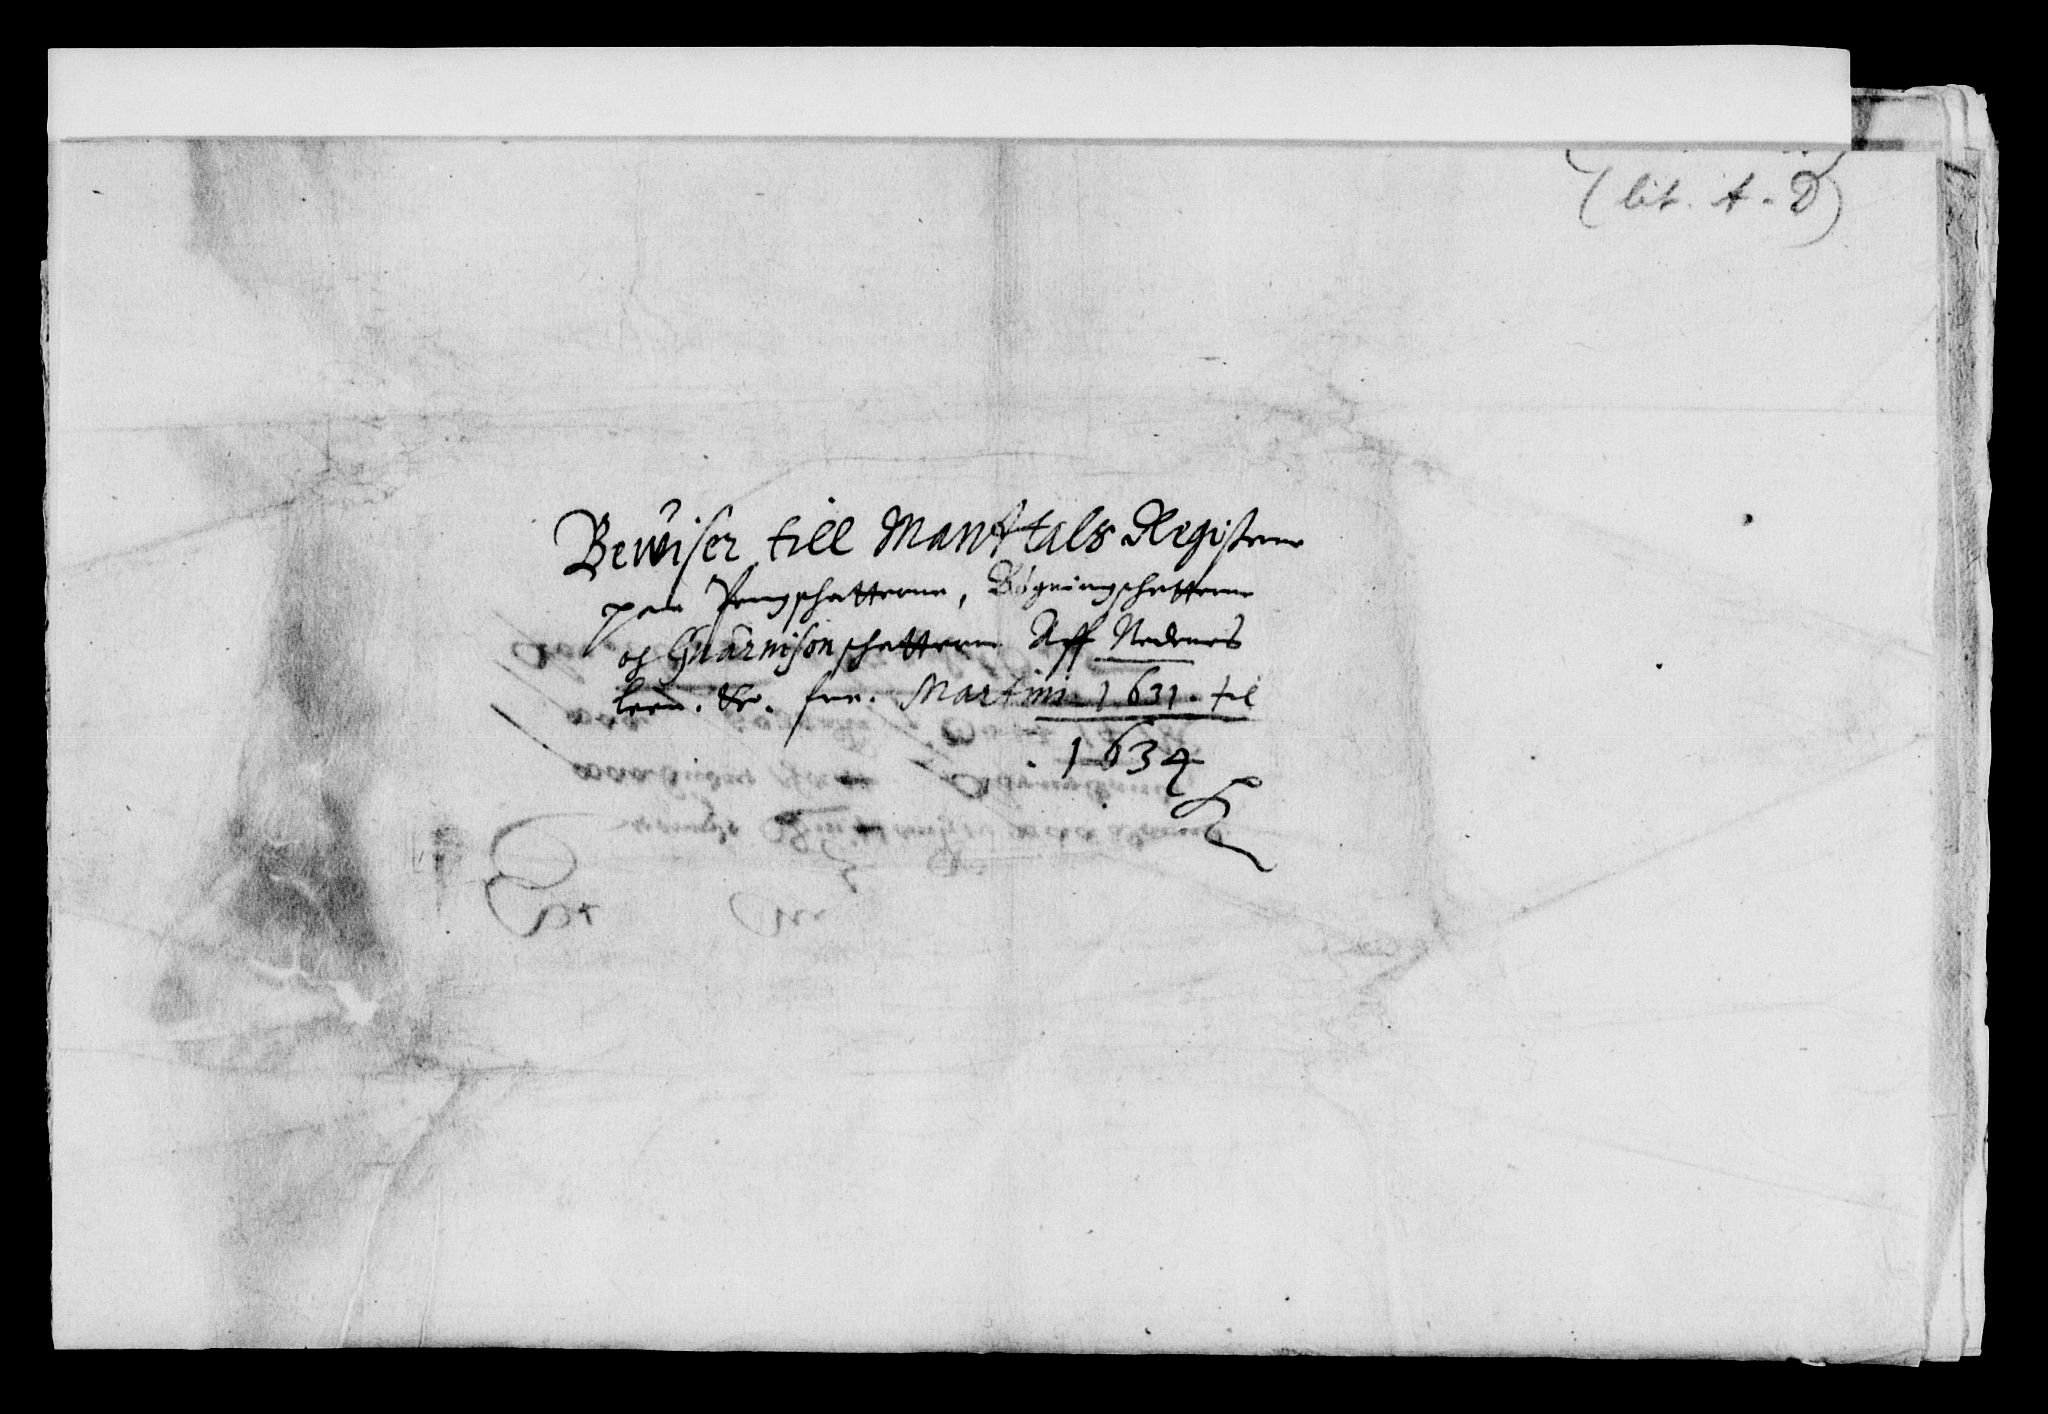 (lit. A-D)
Bewiser till Manttals Registerne
paa Pengschatterne, Bÿgningschatterne
og Guarnisonschatterne Aff Nedenes
leen. &c. fra. Martini. 1631. til
. 1634